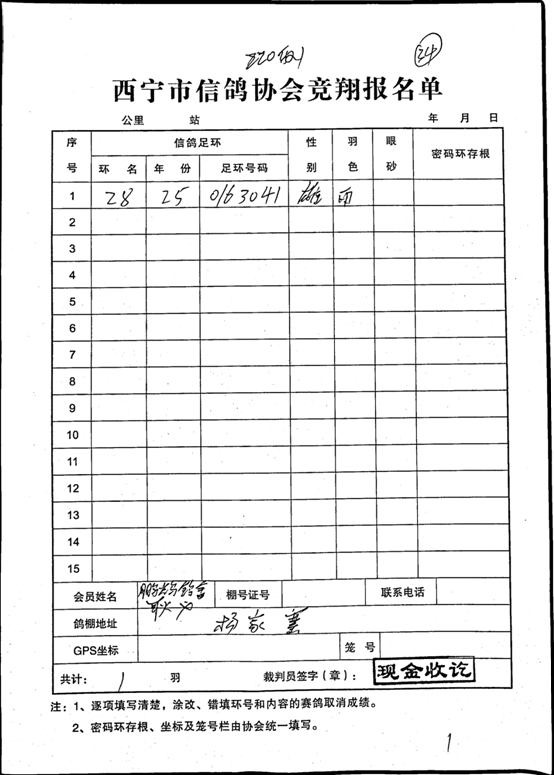 24
西宁市信鸽协会竞翔报名单
公里 站 年 月 日
序号 信鸽足环 性别 羽色 眼砂 密码环存根
环 名 年 份 足环号码
1 28 25 0163041 雄 雨
2
3
4
5
6
7
8
9
10
11
12
13
14
15
会员姓名 棚号证号 联系电话
鸽棚地址 杨家寨
GPS坐标 笼 号
共计: 1 羽 裁判员签字(章): 现金收讫
注:1、逐项填写清楚,涂改、错填环号和内容的赛鸽取消成绩。
2、密码环存根、坐标及笼号栏由协会统一填写。
1